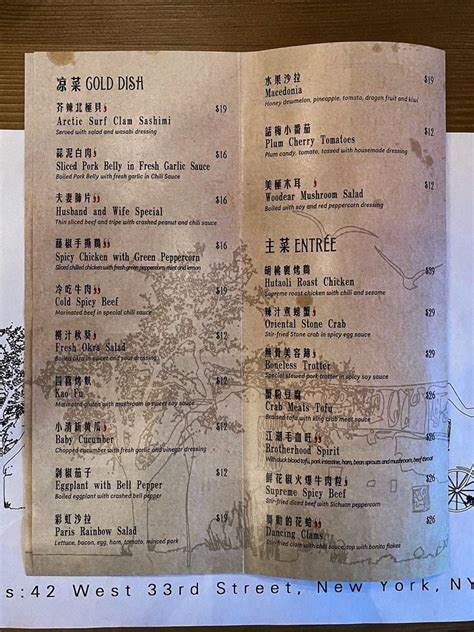 凉菜 GOLD DISH
芥辣北極貝
Arctic Surf Clam Sashimi $19
Served with salad and wasabi dressing
蒜泥白肉
Sliced Pork Belly in Fresh Garlic Sauce $16
Boiled Pork Belly with fresh garlic in Chili Sauce
夫妻肺片
Husband and Wife Special $16
Thin sliced beef and tripe with crashed peanut and chili sauce
藤椒手撕鷄
Spicy Chicken with Green Peppercorn $16
Sliced chilled chicken with fresh green peppercorn, mint and lemon
冷吃牛肉
Cold Spicy Beef $19
Marinated beef in special chili sauce
秋葵
Fresh Okra Salad $12
Boiled okra in sweet and sour dressing
烤麩
Kao Fu $12
Marinated gluten with mushroom in sweet soy sauce
小清新黄瓜
Baby Cucumber $12
Chopped cucumber with fresh garlic and vinegar dressing
剁椒茄子
Eggplant with Bell Pepper $12
Boiled eggplant with crashed bell pepper
彩虹沙拉
Paris Rainbow Salad $19
Lettuce, bacon, egg, ham, tomato, minced pork
水果沙拉
Macedonia $19
Honey dewmelon, pineapple, tomato, dragon fruit and kiwi
話梅小番茄
Plum Cherry Tomatoes $12
Plum candy, tomato, tossed with housemade dressing
美極木耳
Woodear Mushroom Salad $12
Boiled with soy and red peppercorn dressing
主菜 ENTRÉE
胡桃裏烤鷄
Hutaoli Roast Chicken $39
Supreme roast chicken with chili and sesame
辣汁煮螃蟹
Oriental Stone Crab $29
Stir-fried Stone crab in spicy egg sauce
無骨美容蹄
Boneless Trotter $29
Special stewed pork trotter in spicy soy sauce
蟹粉豆腐
Crab Meats Tofu $29
Braised tofu with king crab meat sauce
江湖毛血旺
Brotherhood Spirit $29
With duck blood tofu, pork intestine, ham, bean sprouts and mushroom, beef throat
鮮花椒火爆牛肉粒
Supreme Spicy Beef $26
Stir-fried diced beef with Sichuan peppercorn
的花蛤
Dancing Clams $26
Stir-fried clam with chili sauce, top with bonito flakes
s:42 West 33rd Street, New York, NY